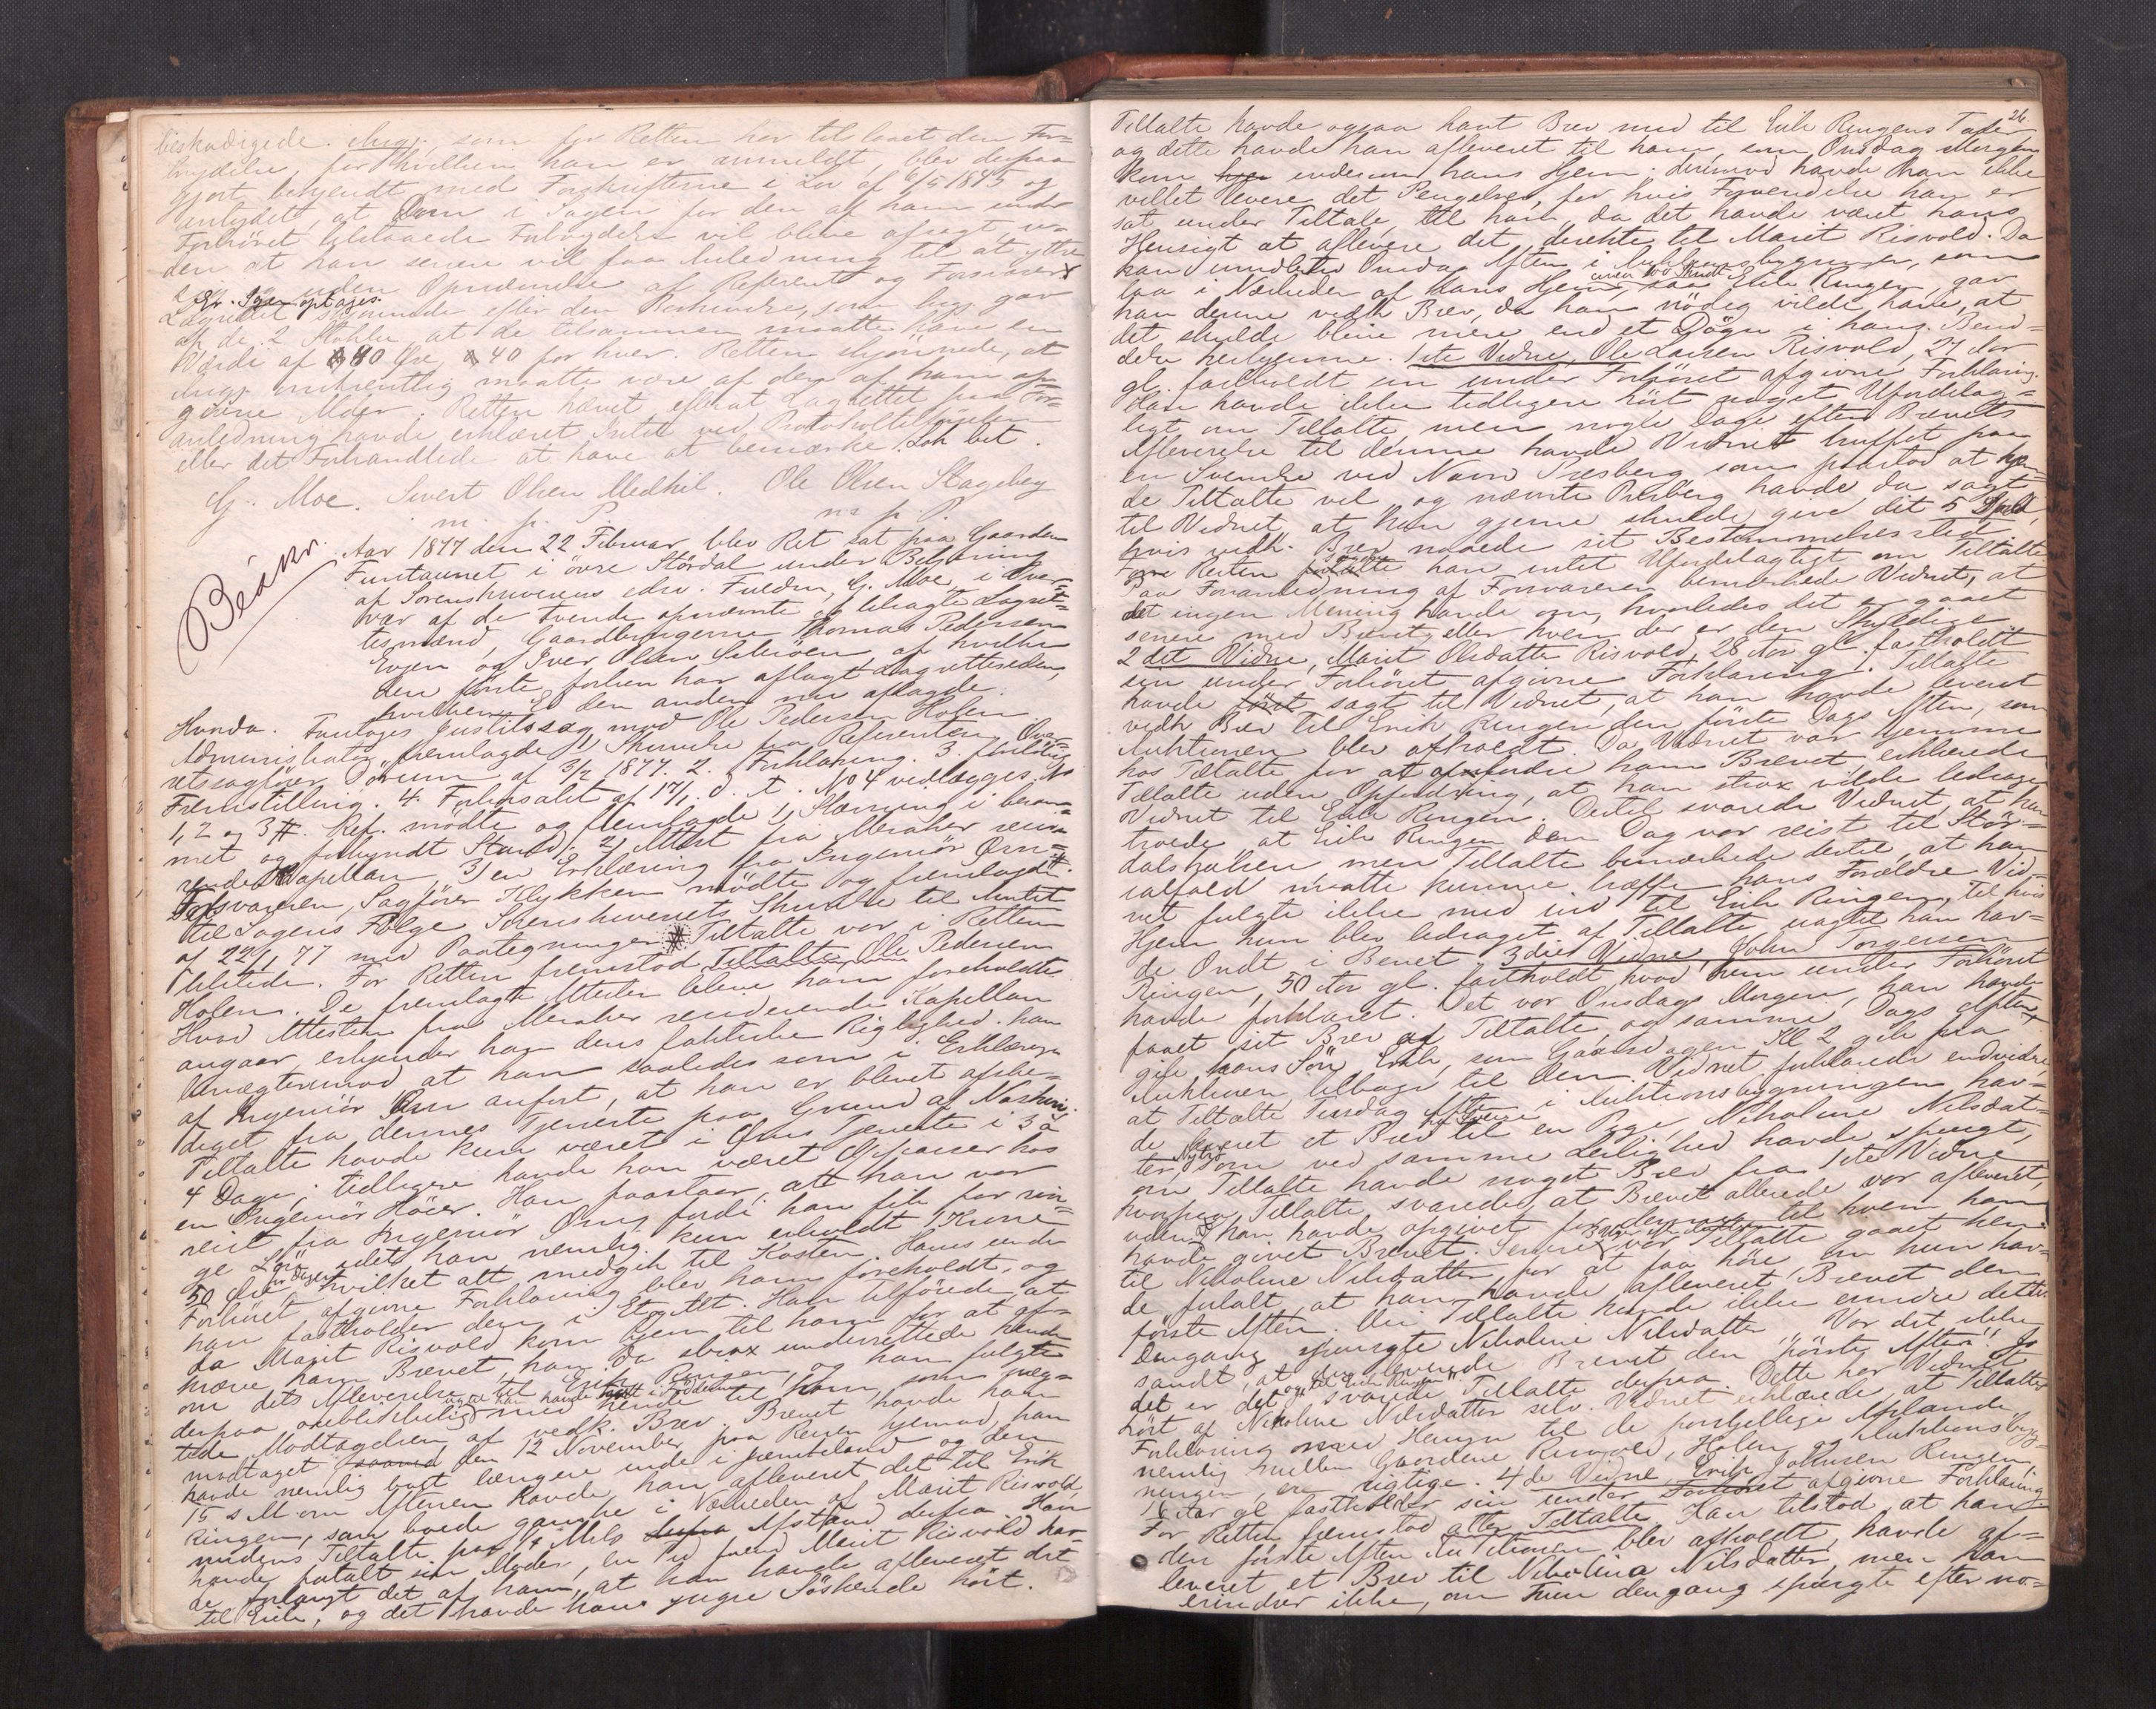 beskadigede. Angj. som for Retten har tilstaaet den For=
brydelse, for hvilken han er anmeldt, blev derpaa
gjort bekjendt med Forskrifterne i Lov af 6/5 1845 og
antydet, at Dom i Sagen for den af ham under
Forhøret tilstaaede Forbrydelse vil blive afsagt, u=
den at han senere vil faa Anledning til at yttre
sig og uden Opnævnelse af Referent og Forsvarer
Er. Sagen optages.
Lagrettet skjønnede efter den Beskrivelse, som Angj. gav
af de 2 Stokke at de tilsammen maatte have en
Værdi af 80 Øre, a 40 for hver. Retten skjønnede, at
Angj. omtrentlig maatte være af den af ham op=
givne Alder. Retten hævet, efterat Lagrettet paa For=
anledning havde erklæret Intet ved Protokoltilførselen
eller det Forhandlede at have at bemærke. Lok bet.
G. Moe. Sivert Olsen Medhil. Ole Olsen Skogeberg
m. p. P. m. p. P.
Beskr.
Aar 1877 den 22 Februar blev Ret sat paa Gaarden
Funtaunet i øvre Størdal under Betjening
af Sorenskriverens edsv. Fuldm. G. Moe, i Over=
vær af de tvende opnævnte og tilsagte Lagret=
tesmænd, Gaardbrugerne Thomas Pedersen
Evjen og Iver Olsen af hvilke
den første forhen har aflagt Lagretteseden,
hvilken Ed den anden nu aflagde.
Hvorda. Foretages Justitssag mod Ole Pedersen Holen
Administrator fremlagde 1, Skrivelse fra Referenten, Over=
retssagfører Dørum af 3/2 1877. 2. Forklaring. 3. foreløbig
Fremstilling. 4. Forhørsakt af 17/1 d. A. No 4 vedlægges. No
1, 2 og 3 #. Ref. mødte og fremlagde 1, Stævning i beram=
met og forkyndt Stand. 2, Attest fra Meraker resi=
derende Kapellan, 3, en Erklæring fra Ingeniør Orn #.
Forsvareren, Sagfører Klykken mødte og fremlagde
til Sagens Følge Sorenskriverets Skrivelse til Amtet
af 22/1 77 med Paategninger #. Tiltalte var i Retten
tilstede. For Retten fremstod Tiltalte, Ole Pedersen
Holen. De fremlagte Attester bleve ham foreholdte.
Hvad Attesten fra Meraker residerende Kapellan
angaar, erkjender han dens faktiske Rigtighed. han
benægter imod at han saaledes som i Erklæring
af Ingeniør Orn anført, at han er blevet afske=
diget fra dennes Tjeneste paa Grund af Naskeri.
Tiltalte havde kun været i Orns Tjeneste i 3 a
4 Dage; tidligere havde han været Opasser hos
en Ingeniør Höier. Han paastaar, at han var
reist fra Ingeniør Orn, fordi han fik for rin=
ge Løn idet han nemlig kun erholdt 1 Krone
50 Øre pr Dagen hvilket alt medgik til Kosten. Hans under
Forhøret afgivne Forklaring blev ham foreholdt, og
han fastholder den i Et og Alt. Han tilføiede, at
da Marit Risvold kom hjem til ham for at af=
kræve ham Brevet, han da strax underrettede hende
om dets Aflevering til Erik Ringen, og han fulgte
derpaa øieblikkelig med hende til ham, som næg=
tede Modtagelsen af vedk. Brev. Brevet havde han
modtaget den 12 November paa Reisen hjemad, han
havde nemlig boet længere inde i Jemteland og den
15 s M om Aftenen havde han afleveret det til Erik
Ringen, som boede ganske i Nærheden af Marit Risvold
medens Tiltalte paa 1/4 Mils Afstand derfra. Han
havde fortalt sin Moder, en Tid førend Marit Risvold hav=
de forlangt det af ham, at han havde afleveret det
til Erik, og det havde hans yngre Söskende hört.
26.
Tiltalte havde ogsaa havt Brev med til Erik Ringens Fader
og dette havde han afleveret til ham, som Onsdag Morgen
kom indenom hans Hjem; derimod havde han ikke
villet levere det Pengebrev, for hvis Forvendelse han er
sat under Tiltale, til ham, da det havde været hans
Hensigt at aflevere det direkte til Marit Risvold. Da
han imidlertid Onsdag Aften i Auktionsbygningen, som
laa i Nærheden af hans Hjem, circa 100 Skridt saa Erik Ringen, gav
han denne vedk Brev, da han nødig vilde have, at
det skulde blive mere end et Døgn i hans Bend=
delse herhjemme. 1ste Vidne, Ole Larsen Risvold, 27 Aar
gl. fastholdt sin under Forhøret afgivne Forklaring.
Han havde ikke tidligere hört noget Ufordelag=
tigt om Tiltalte men nogle Dage efter Brevets
Aflevering til denne havde Vidnet truffet paa
en Svenske ved Navn Presberg som paastod at kjen=
de Tiltalte vel og nævnte Presberg havde da sagt
til Vidnet, at han gjerne skulde give dit 5 Spd.
hvis vedk. Brev naaede sit Bestemmelsessted,
Forøvrigt fortalte han intet Ufordelagtigt om Tiltalte
Paa Foranledning af Forsvareren bemærkede Vidnet, at
det ingen Mening havde om, hvorledes det er gaaet
senere med Brevet, eller hvem der er den Skyldige
2det Vidne, Marit Olsdatter Risvold, 28 Aar gl. fastholdt
sin under Forhöret afgivne Forklaring. Tiltalte
havde först sagt til Vidnet, at han havde leveret
vedk Brev til Erik Ringen den første Dags Aften, som
Auktionen blev afholdt. Da Vidnet var hjemme
hos Tiltalte for at affordre ham Brevet, erklærede
Tiltalte uden Opfordring, at han strax vilde ledsage
Vidnet til Erik Ringen. Dertil svarede Vidnet, at han
troede at Erik Ringen den Dag var reist til Stør=
dalshalsen men Tiltalte bemærkede dertil, at han
ialfald maatte kunne træffe hans Forældre Vid=
net fulgte ikke med ind til Erik Ringen, til hvis
Hjem hun blev ledsaget af Tiltalte uagtet han hav=
de Ondt i Benet. 3die Vidne, John Torgersen
Ringen, 50 Aar gl. fastholdt, hvad han under Forhöret
havde forklaret. Det var Onsdags Morgen, han havde
faaet sit Brev af Tiltalte, og samme Dags Aften
gik hans Søn Erik, som Gaarsdagen Kl 2 gik fra
Auktionen tilbage til den. Vidnet forklarede endvidere,
at Tiltalte Tirsdag Aften i Auktionsbygningen hav=
de leveret et Brev til en Pige, Nikoline Nilsdat=
ter, som ved samme Leilighed havde spurgt,
om Tiltalte havde noget Brev fra 1ste Vidne
hvorpaa Tiltalte svarede, at Brevet allerede var afleveret,
uden at han havde opgivet for hende til hvem han
havde givet Brevet. Senere var Tiltalte gaaet hen
til Nikoline Nilsdatter for at faa höre om hun hav=
de fortalt, at han havde afleveret Brevet den
første Aften. Om Tiltalte kunde ikke erindre dette.
Dengang spurgte Nikoline Nilsdatter "Var det ikke
sandt, at du leverede Brevet den første Aften" "Jo
det er det" svarede Tiltalte derpaa. Dette har Vidnet
hört af Nikoline Nilsdatter selv. Vidnet erklærede, at Tiltaltes
Forklaring med Hensyn til de forskjellige Afstande,
nemlig mellem Gaardene Risvold, Holen og Auktionsbyg=
ningen er rigtige. 4de Vidne, Erik Johnsen Ringen,
16 Aar gl. fastholder sin under Forhøret afgivne Forklaring
For Retten fremstod atter Tiltalte. Han tilstod, at han
den første Aften Auktionen blev afholdt, havde af=
leveret et Brev til Nikolina Nilsdatter, men han
erindrer ikke, om hun dengang spurgte efter no=